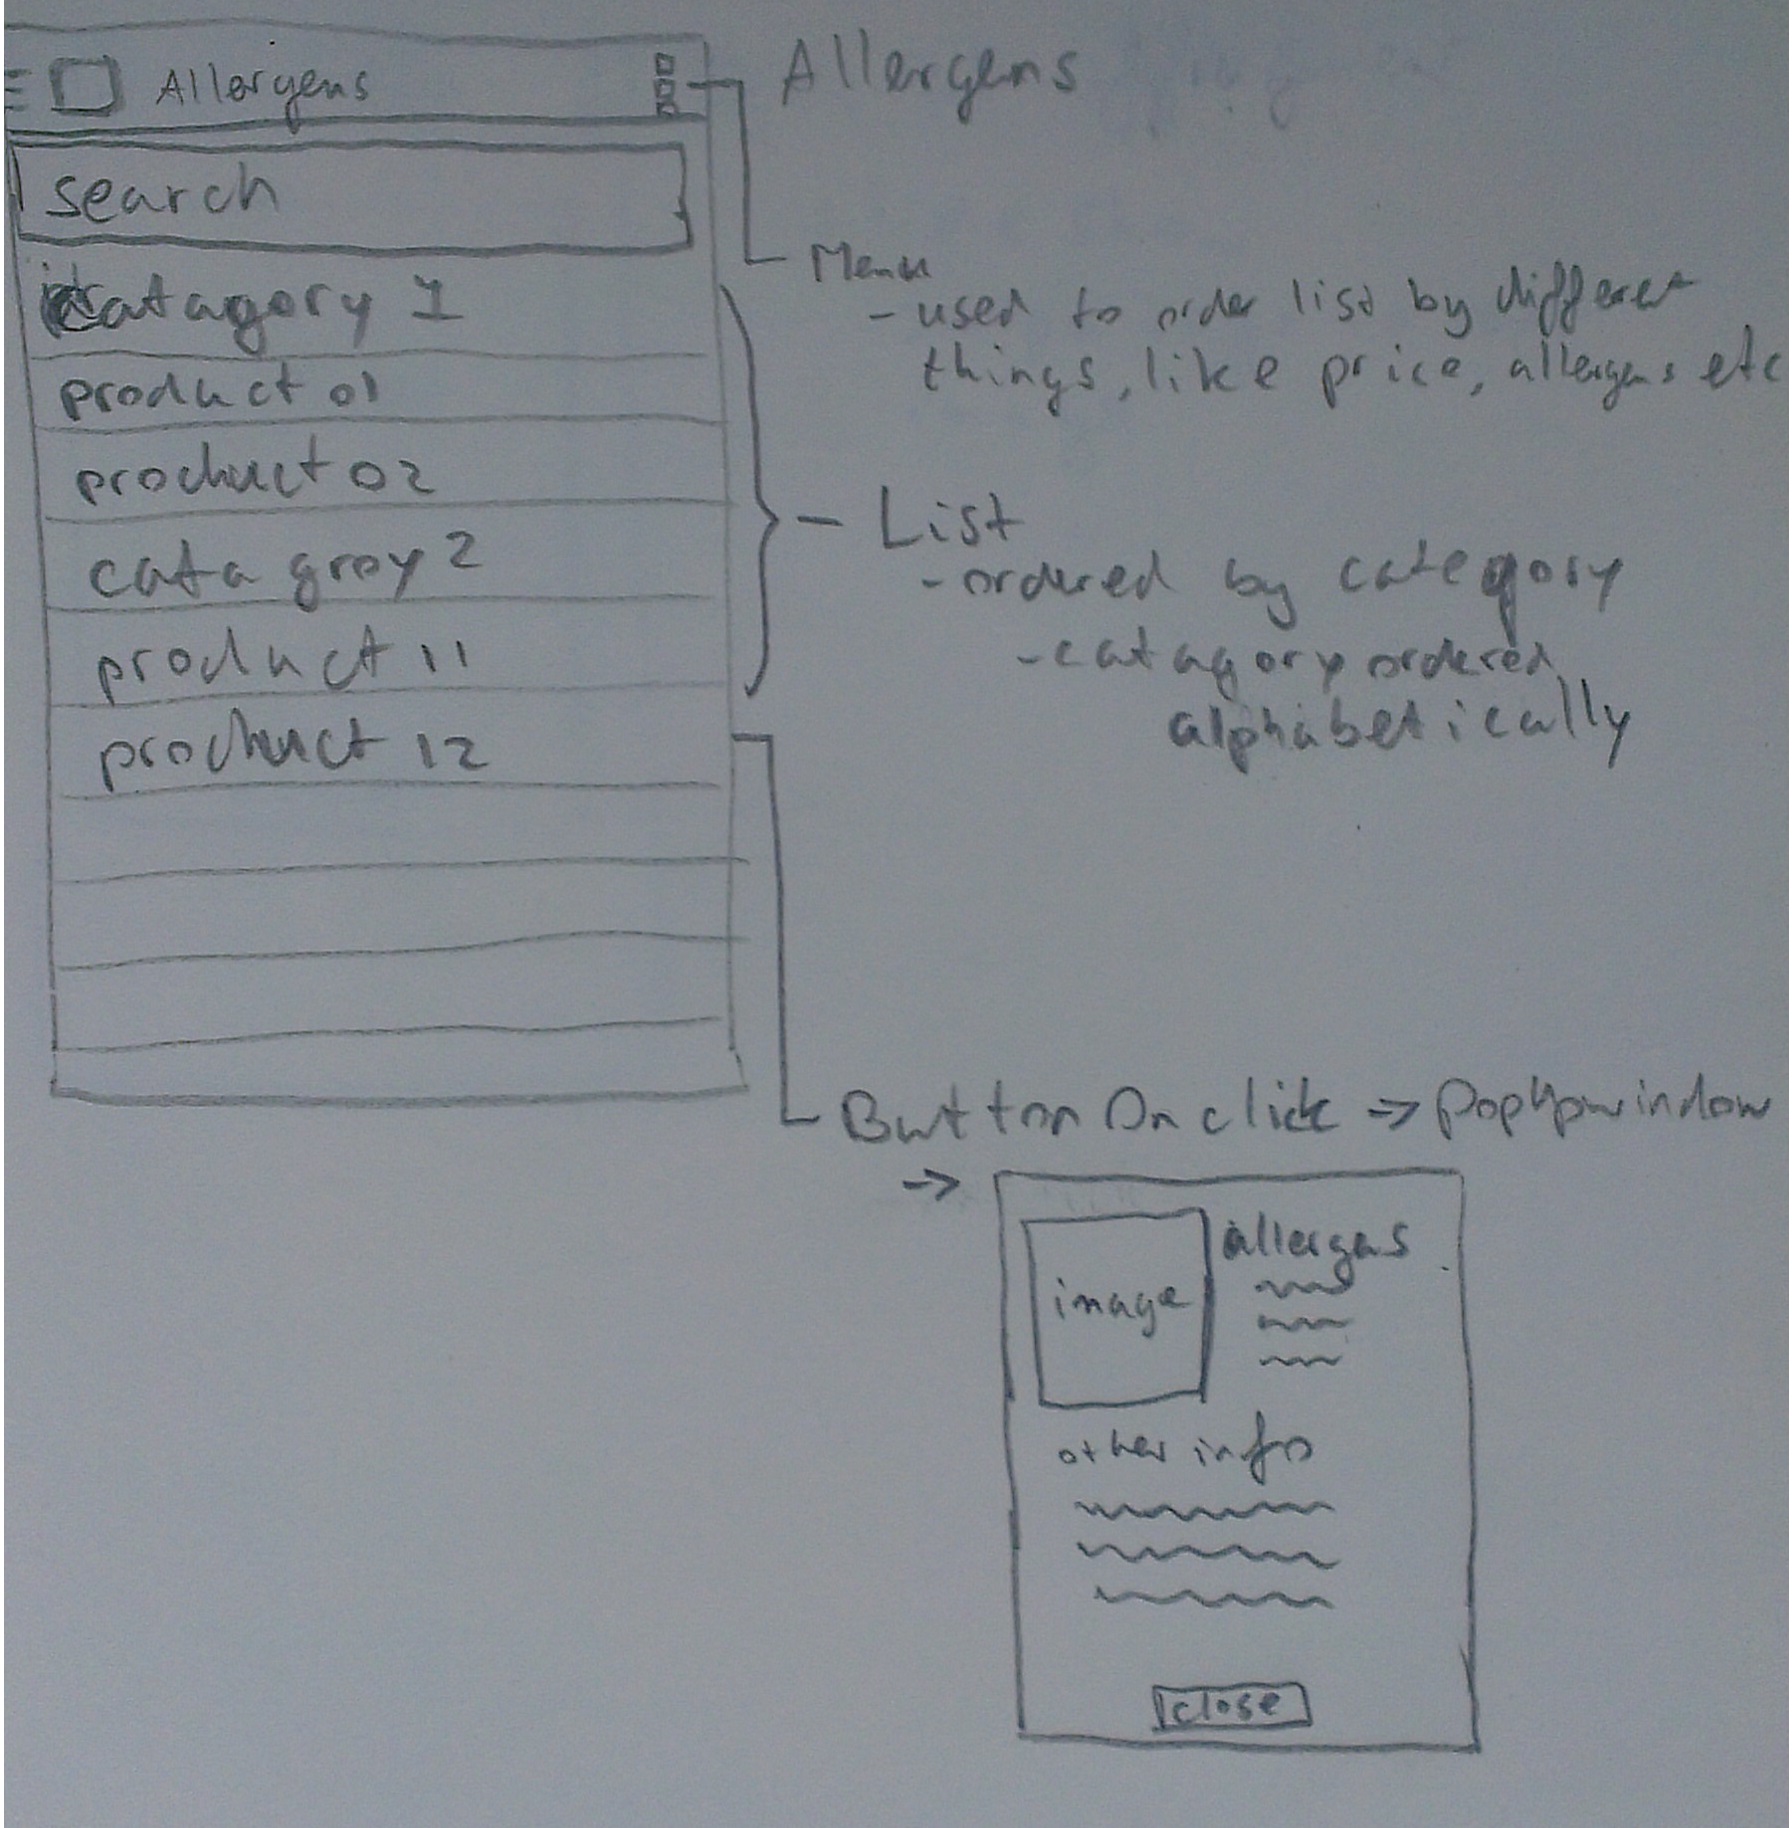 Allergens
Allergens
search
catagory 1
product 01
product 02
catagroy 2
product 11
product 12
Menu
- used to order list by different
things, like price, allergens etc
- List
- ordered by category
- catagory ordered
alphabetically
Button On click → PopUpwindow
→
image
allergens
other info
close